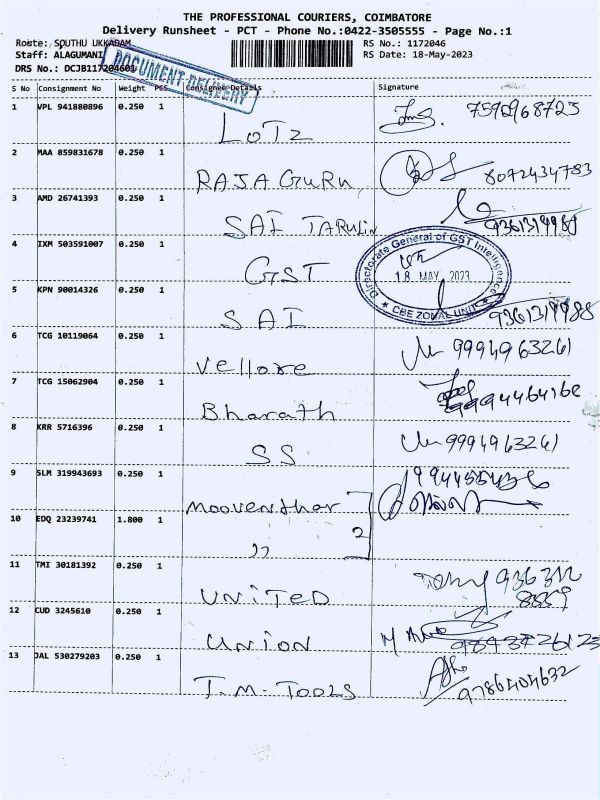 THE PROFESSIONAL COURIERS, COIMBATORE
Delivery Runsheet - PCT - Phone No.:0422-3505555 - Page No.:1
Route: SOUTHU UKKADAM
RS No.: 1172046
Staff: ALAGUMANI
RS Date: 18-May-2023
DRS No.: DCJB117204601
DOCUMENT DELIVERY
S No Consignment No Weight PCS Consignee Details Signature
1 VPL 941880896 0.250 1 LOTZ 7590968723
2 MAA 859831678 0.250 1 RAJAGURU 8072434783
3 AMD 26741393 0.250 1 SAI
4 IXM 503591007 0.250 1 GST
Directorate General of GST Intelligence
18 MAY 2023
CBE ZONAL UNIT
5 KPN 90014326 0.250 1 SAI
6 TCG 10119064 0.250 1 Vellore 9994963261
7 TCG 15062904 0.250 1 Bharath
8 KRR 5716396 0.250 1 SS 9994963261
9 SLM 319943693 0.250 1 Mooventhar
10 EDQ 23239741 1.800 1 " 2
11 TMI 30181392 0.250 1 UNITED 936312
889
12 CUD 3245610 0.250 1 UNION
13 JAL 530279203 0.250 1 T.M-TOOLS 9786404632